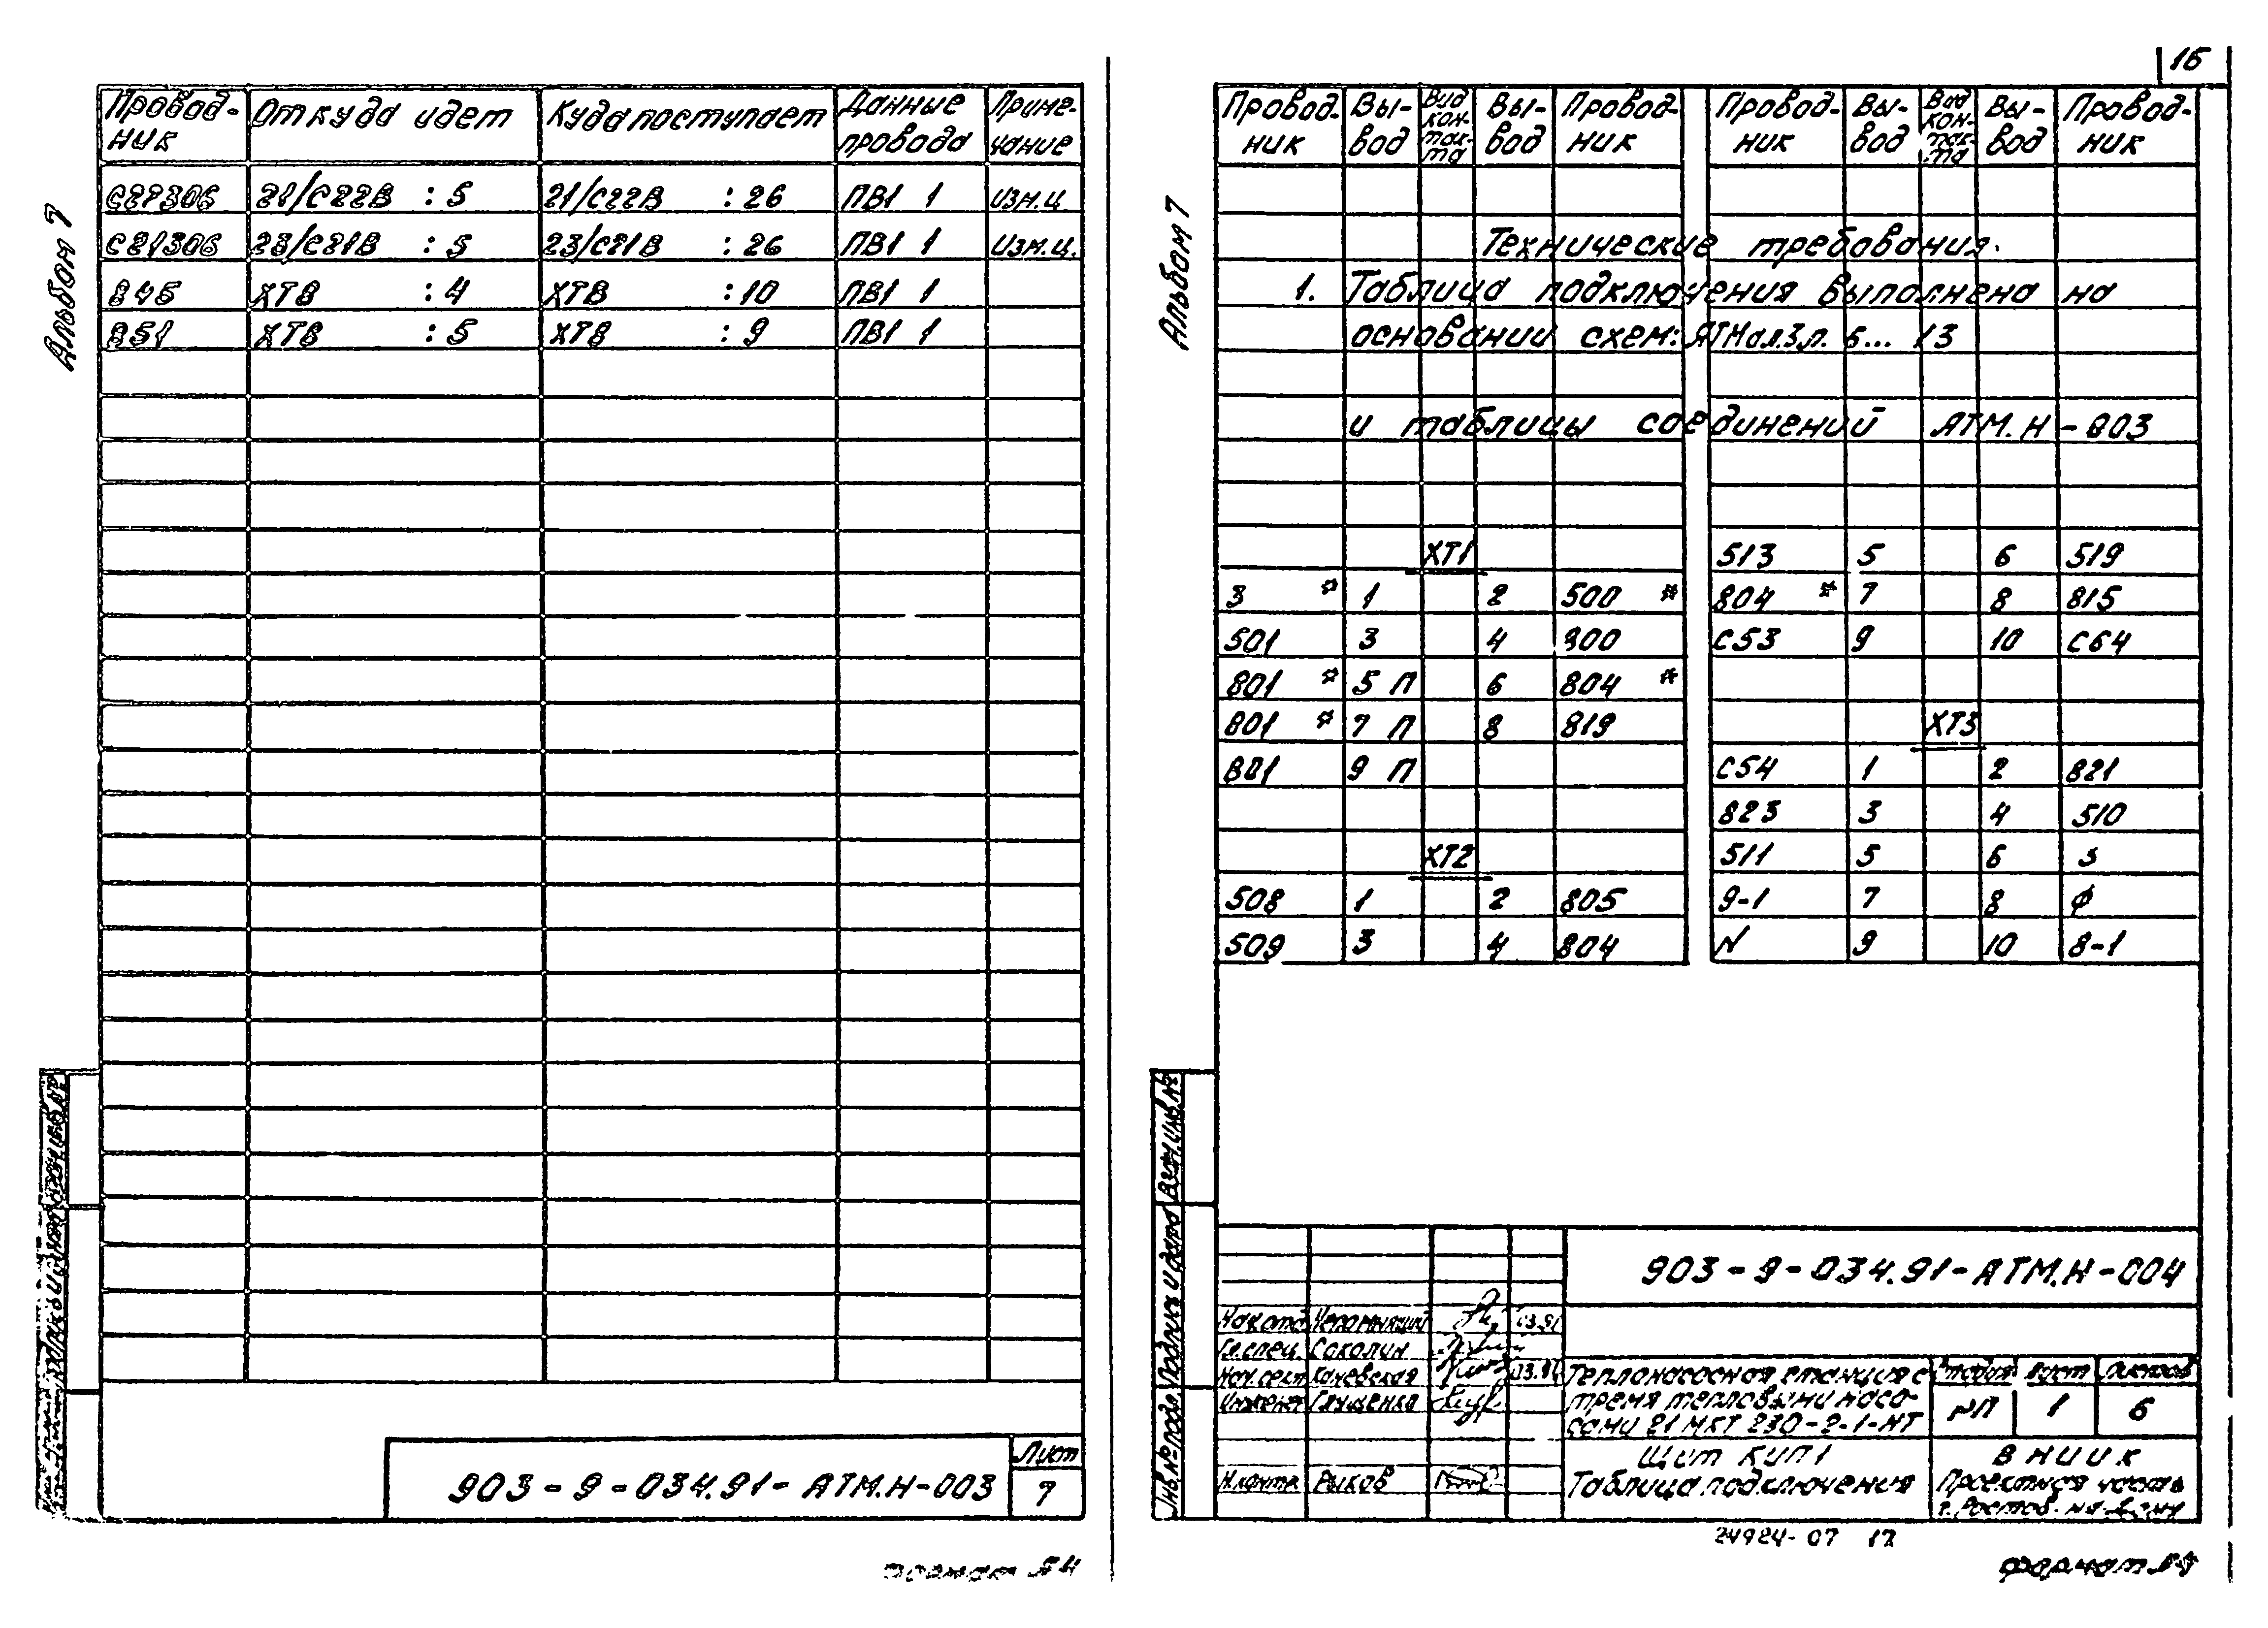 16
Альбом 7
Провод-ник Откуда идет Куда поступает Данные провода Приме-чание
21/С22В : 5 21/С22В : 26 ПВ1 1 Изм.ц.
С21306 23/С21В : 5 23/С21В : 26 ПВ1 1 Изм.ц.
845 ХТ8 : 4 ХТ8 : 10 ПВ1 1
851 ХТ8 : 5 ХТ8 : 9 ПВ1 1
Лист
903-9-034.91-АТМ.Н-003
Формат А4
Альбом 7
Провод-ник Вы-вод Вид кон-так-та Вы-вод Провод-ник Провод-ник Вы-вод Вид кон-так-та Вы-вод Провод-ник
Технические требования.
1. Таблица подключения выполнена на
основании схем: АТМ ал.3 л. 6... 13
и таблицы соединений АТМ.Н-003
ХТ1 513 5 6 519
3 * 1 2 500 * 804 * 7 8 815
501 3 4 800 С53 9 10 С64
801 * 5 П 6 804 *
801 * 7 П 8 819 ХТ3
801 9 П С54 1 2 821
823 3 4 510
ХТ2 511 5 6
508 1 2 805 9-1 7 8 ф
509 3 4 804 N 9 10 8-1
Взам.инв.№
Подпись и дата
Инв.№ подл.
903-9-034.91-АТМ.Н-004
Нач.отд. Непомнящий 03.91
Гл.спец. Соколин
Нач.сект. Каневская 03.91
Инженер Глущенко
Н.контр. Рыков
Теплонасосная станция с
тремя тепловыми насо-
сами 21 МКТ 230-2-1-НТ
Стадия Лист Листов
РП 1 6
Щит КИП 1
Таблица подключения
ВНИИК
Проектная часть
г.Ростов-на-Дону
24924-07 17
Формат А4